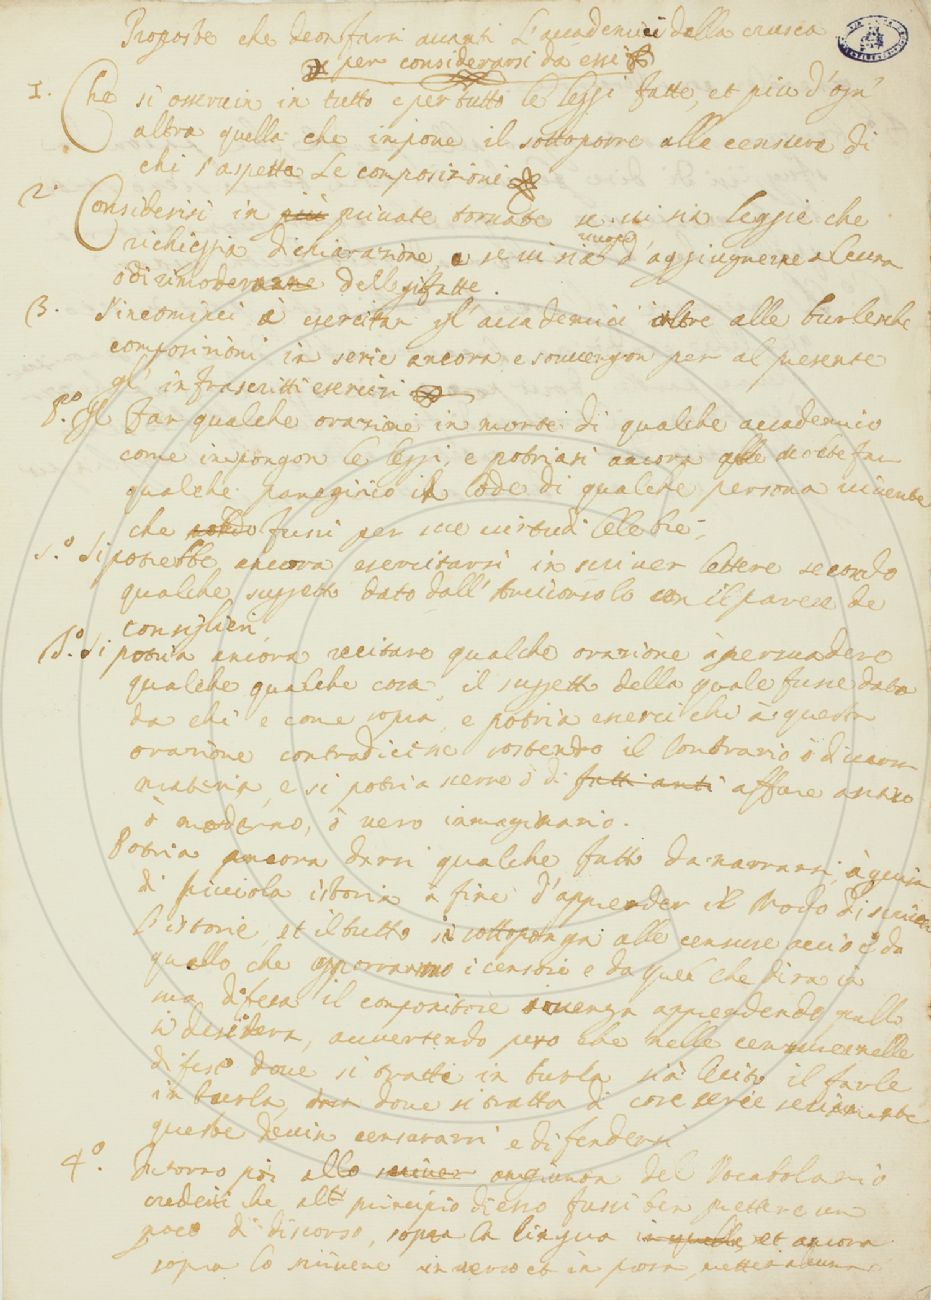 Proposte che deon farsi avanti l'accademici della crusca
per considerarsi da essi
1. Che si osservin in tutto e per tutto le leggi fatte, et piu d'ogn'
altra quella che inpone il sottoporre alle censure di
chi s'aspetta le composizioni
2. Considerisi in più private tornate se vi sia leggie che
richiegga dichiarazione e se vi sia d'aggiugnerne alcuna
nuovo
o di rimodernarne delle gia fatte.
3. S'incominci à esercitar gl'accademici oltre alle burlesche
composizioni in serie ancora e sovvengon per al presente
gl'infrascritti esercizi
P.º Il far qualche orazione in morte di qualche accademico
come inpongon le leggi, e potriasi ancora alle
qualche panegirico in lode di qualche persona vivente
che fussi per sue virtudi celebre;
S.º Si potrebbe ancora esercitarsi in scriver lettere secondo
qualche suggetto dato dall'Arciconsolo con il parere de
consiglieri
3.º Si potria ancora recitare qualche orazione à persuadere
qualche qualche cosa, il suggetto della quale fusse dato
da chi e come sopra, e potria esserci chi à questa
orazione contradicesse sostendo il contrario ò di varia
materia, e si potria ò di fatti anti affare antico
ò moderno, ò vero inmaginario.
Potria ancora darsi qualche fatto da narrarsi, à guisa
di picciola istoria à fine d'apprender il modo di scriver
l'istorie, et il tutto si sottoponga alle censure acciò da
quello che opporranno i censori e da quel che dirà in
sua difesa il conponitore si venga apprendendo quello
si desidera, avvertendo pero che nelle censure e nelle
difese dove si tratta in burla sia lecito il farle
in burla, dove si tratta di cose serie seriamente
queste devin censurarsi e difendersi
4.º Intorno poi allo scriver angiunta del Vocabolario
crederei che al principio di esso fussi ben mettere un
poco di discorso, sopra la lingua in quella et ancora
sopra lo scrivere in verso et in prosa, metter alcuna